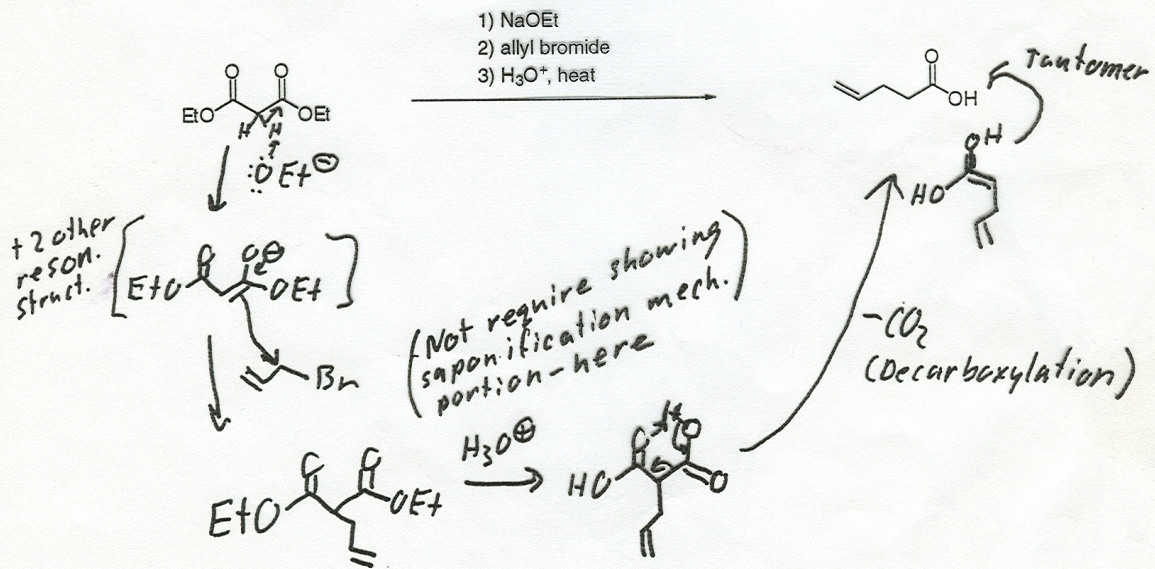 1) NaOEt
2) allyl bromide
3) H₃O⁺, heat
O O
EtO OEt
H H
:Ö Et⊖
O
OH
Tautomer
OH
HO
+ 2 other
reson.
struct.
O O⊖
EtO OEt
Br
(Not require showing
saponification mech.
portion - here)
-CO₂
(Decarboxylation)
H₃O⊕
O O
EtO OEt
O H O
HO O